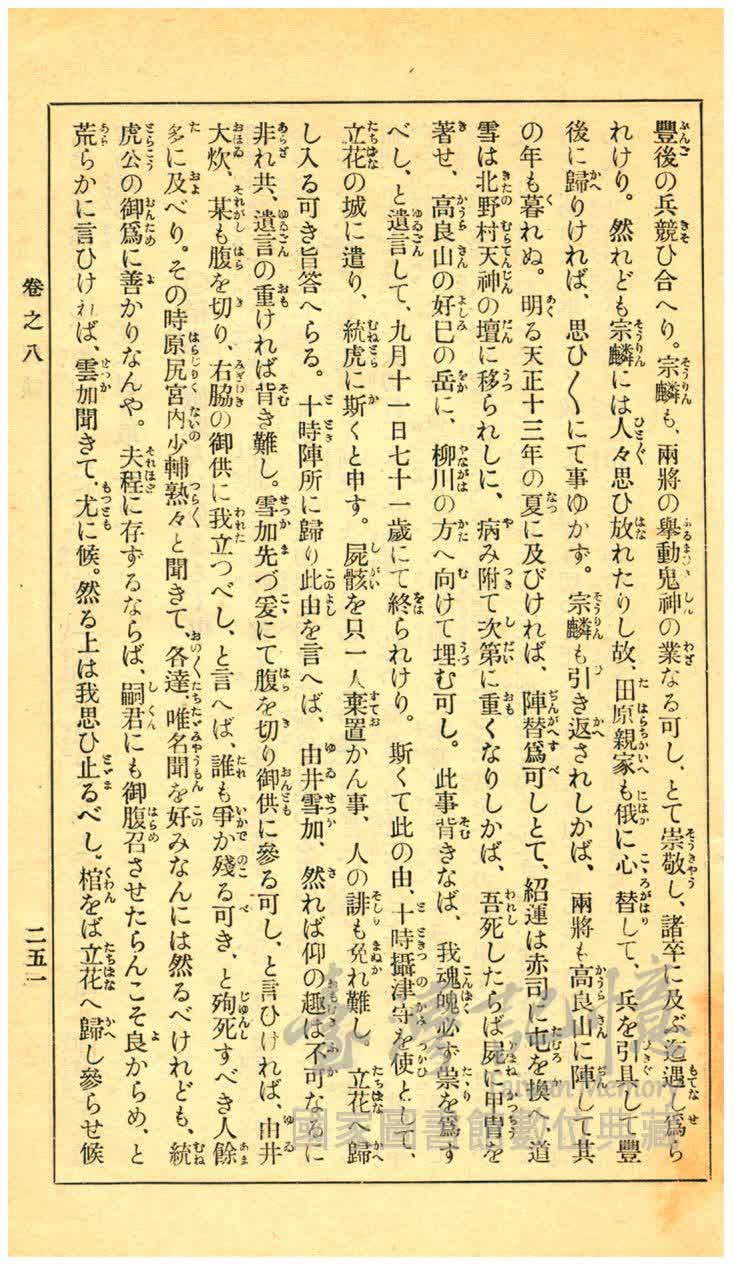 豐後の兵競ひ合へり。宗麟も、兩將の擧動鬼神の業なる可し、とて崇敬し、諸卒に及ぶ迄遇し爲ら
れけり。然れども宗麟には人々思ひ放れたりし故、田原親家も俄に心替して、兵を引具して豐
後に歸りければ、思ひ〳〵にて事ゆかず。宗麟も引き返されしかば、兩將も高良山に陣して其
の年も暮れぬ。明る天正十三年の夏に及びければ、陣替爲可しとて、紹運は赤司に屯を換へ、道
雪は北野村天神の壇に移られしに、病み附て次第に重くなりしかば、吾死したらば屍に甲冑を
著せ、高良山の好巳の岳に、柳川の方へ向けて埋む可し。此事背きなば、我魂魄必ず祟を爲す
べし、と遺言して、九月十一日七十一歲にて終られけり。斯くて此の由、十時攝津守を使として、
立花の城に遣り、統虎に斯くと申す。屍骸を只一人棄置かん事、人の誹も免れ難し。立花へ歸
し入る可き旨答へらる。十時陣所に歸り此由を言へば、由井雪加、然れば仰の趣は不可なるに
非れ共、遺言の重ければ背き難し。雪加先づ爰にて腹を切り御供に參る可し、と言ひければ、由井
大炊、某も腹を切り、右脇の御供に我立つべし、と言へば、誰も爭か殘る可き、と殉死すべき人餘
多に及べり。その時原尻宮內少輔熟々と聞きて、各達、唯名聞を好みなんには然るべけれども、統
虎公の御爲に善かりなんや。夫程に存ずるならば、嗣君にも御腹召させたらんこそ良からめ、と
荒らかに言ひければ、雲加聞きて、尤に候。然る上は我思ひ止るべし。棺をば立花へ歸し參らせ候
卷之八
二五一
國家圖書館數位典藏